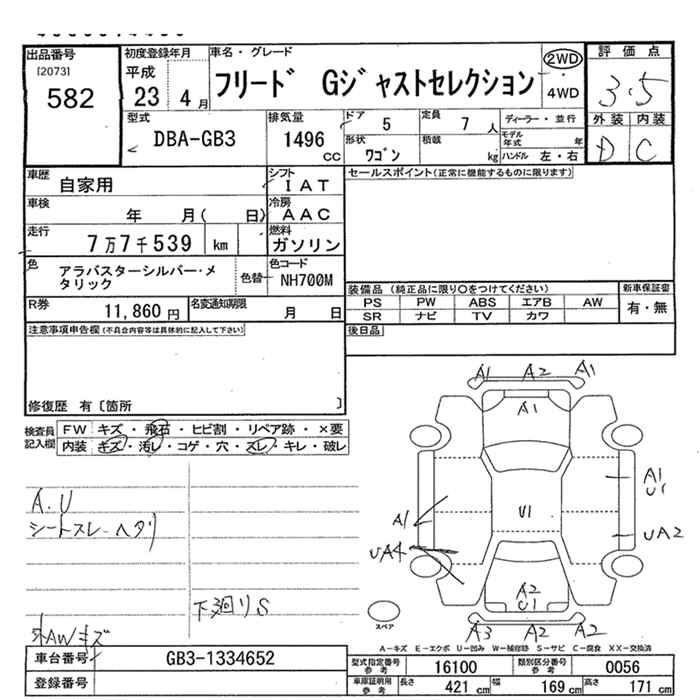 出品番号
[2073]
582
初度登録年月
平成
23 4月
車名・グレード
フリード Gジャストセレクション
2WD
・
4WD
評価点
3.5
外装 内装
D C
型式
DBA-GB3
排気量
1496
CC
ドア 5
形状
ワゴン
定員 7 人
積載
kg
ディーラー・並行
モデル年式 年
ハンドル 左・右
車歴
自家用
シフト
IAT
車検
年 月( 日)
冷房
AAC
走行
7万7千539 km
燃料
ガソリン
色
アラバスターシルバー・メタリック
色替
色コード
NH700M
R券
11,860 円
名変通知期限
月 日
セールスポイント(正常に機能するものに限ります)
装備品 (純正品に限り○をつけてください)
PS PW ABS エアB AW
SR ナビ TV カワ
新車保証書
有・無
後日品
注意事項申告欄(不具合内容等は具体的に記入して下さい)
修復歴 有〔箇所 〕
検査員
記入欄
FW キズ・飛石・ヒビ割・リペア跡・×要
内装 キズ・汚レ・コゲ・穴・スレ・キレ・破レ
A.U
シートスレ-ヘタリ
下廻りS
外AWキズ
A1 A2 A1
A1
A1
U1
A1
U1
UA2
UA4
A2
U1
A3 A2 A2
スペア
A-キズ E-エクボ U-凹み W-補修跡 S-サビ C-腐食 XX-交換済
車台番号
GB3-1334652
登録番号
型式指定番号
参考
16100
類別区分番号
参考
0056
車庫証明用
参考
長さ 421 cm
幅 169 cm
高さ 171 cm